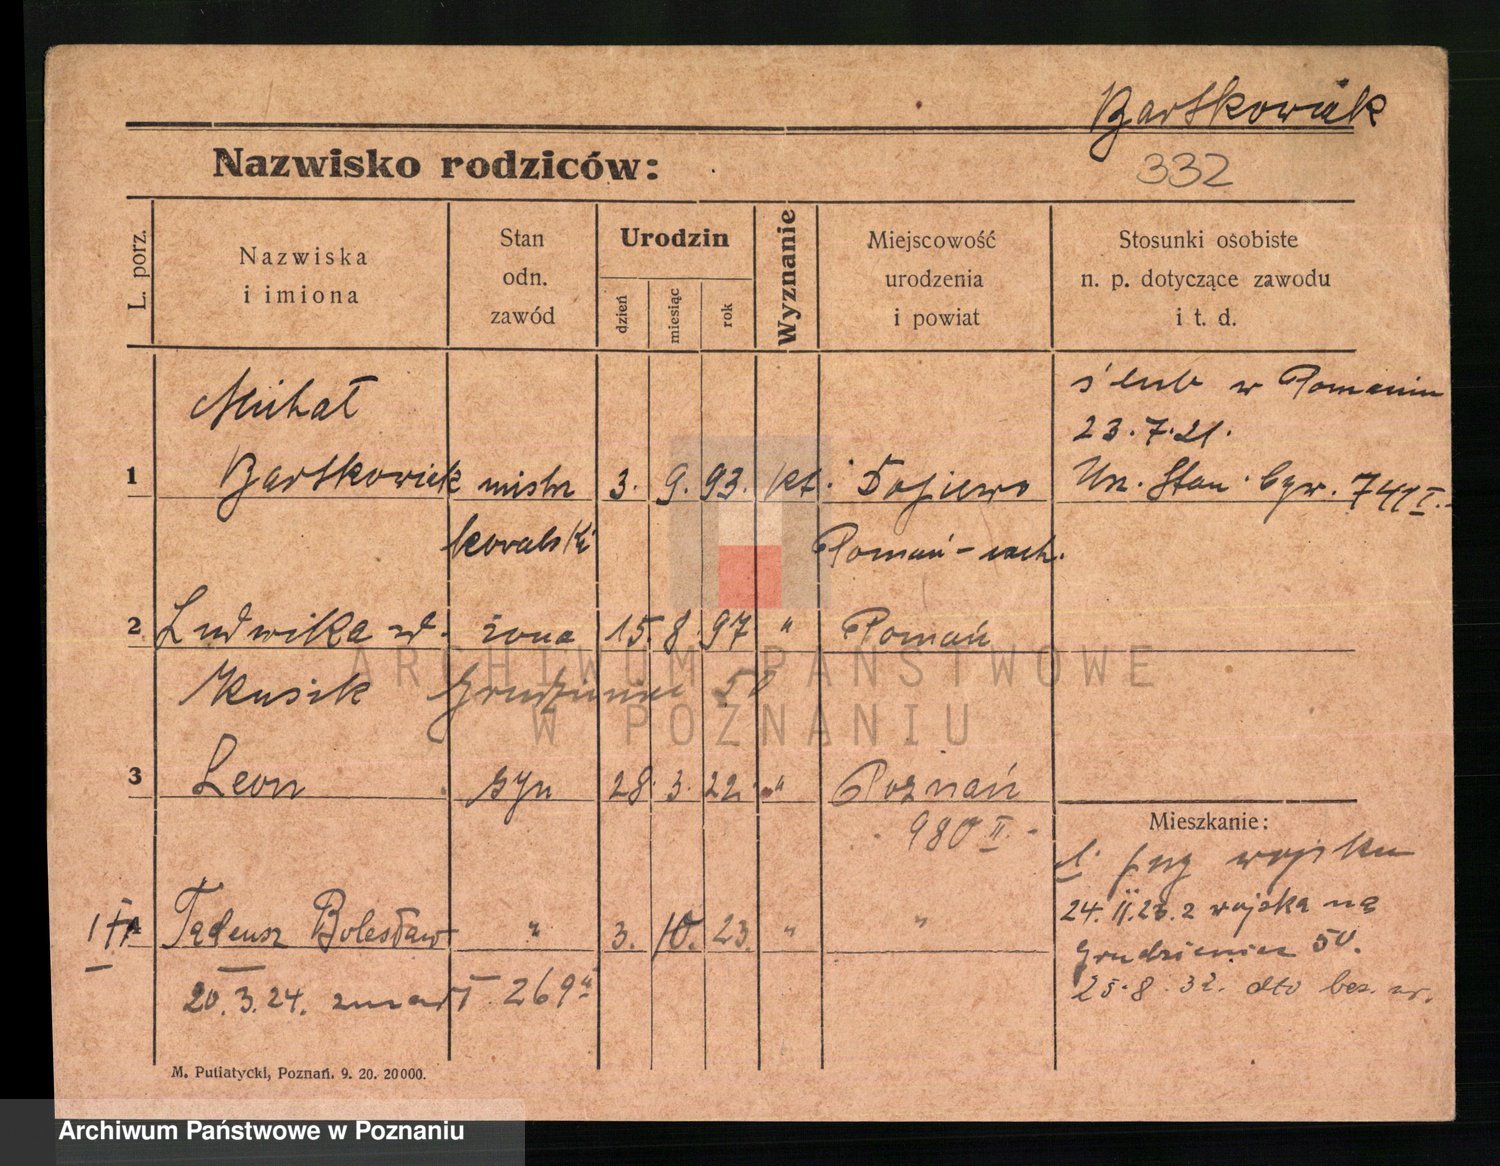 Bartkowiak
Nazwisko rodziców:
332
L. porz.
Nazwiska
i imiona
Stan
odn.
zawód
Urodzin
dzień
miesiąc
rok
Wyznanie
Miejscowość
urodzenia
i powiat
Stosunki osobiste
n. p. dotyczące zawodu
i t. d.
Michał
ślub w Poznaniu
23.7.21.
1 Bartkowiak mistrz 3. 9. 93. kt. Dopiewo
Urz. Stan. Cyw. 741 I.
kowalski Poznań-zach.
2 Ludwika z d. żona 15. 8. 97 " Poznań
Kusik Grudzieniec 50
3 Leon syn 28. 3. 22. " Poznań
980 II.
Mieszkanie:
wojsku
24. II. 23. z wojska na
4 Tadeusz Bolesław " 3. 10. 23. " "
Grudzieniec 50.
20.3.24. zmarł 269
25.8.32. dto
M. Putiatycki, Poznań. 9. 20. 20000.
ARCHIWUM PAŃSTWOWE
W POZNANIU
Archiwum Państwowe w Poznaniu